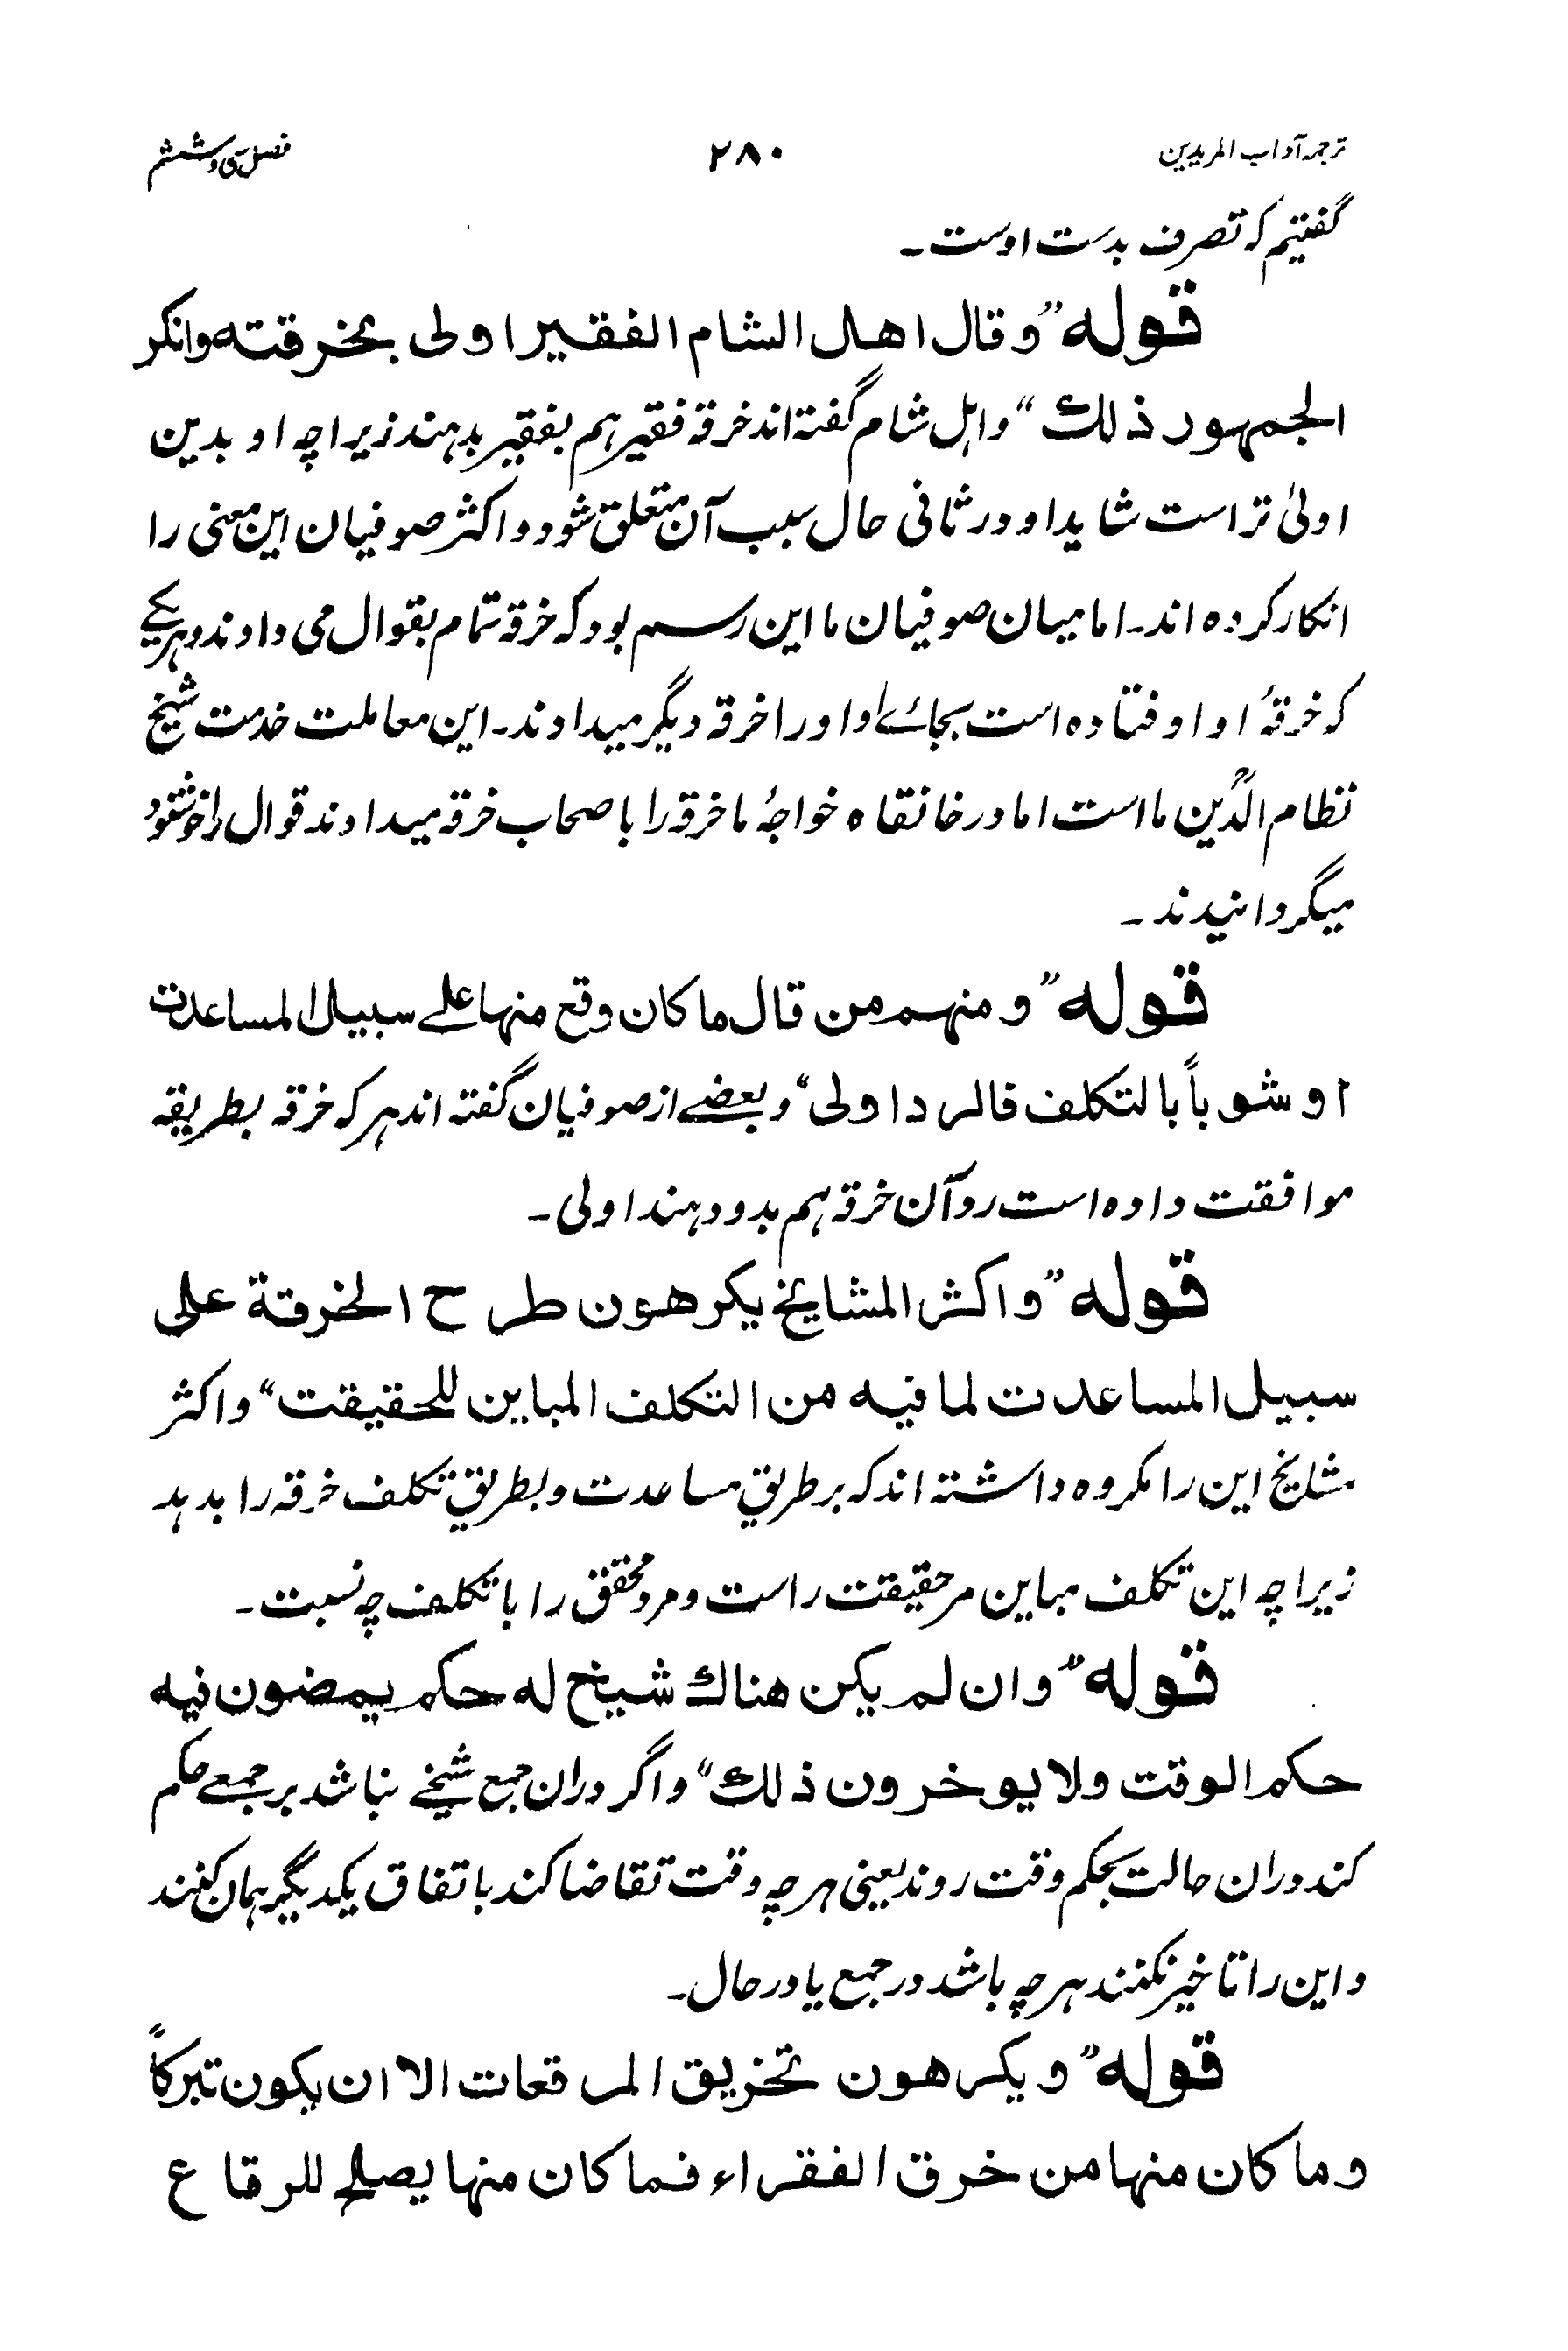 ترجمہ آداب المریدین ۲۸۰ فصل سی و ششم
گفتیم کہ تصرف بدست اوست۔
قولہ ”و قال اھل الشام الفقیر اولی بخرقتہ وانکر
الجمہور ذلك“ واہل شام گفتہ اند خرقہ فقیر ہم بفقیر بدہند زیراچہ او بدین
اولیٰ تر است شاید او در ثانی حال سبب آن متعلق شود و اکثر صوفیان این معنی را
انکار کردہ اند۔ اما میان صوفیان ما این رسم بود کہ خرقہ تمام بقوال می دادند و ہریکے
کہ خرقۂ او اوفتادہ است بجائے او او را خرقہ دیگر میدادند۔ این معاملت خدمت شیخ
نظام الدینؒ ما است اما در خانقاہ خواجۂ ما خرقہ را باصحاب خرقہ میدادند قوال را خوشنود
میگردانیدند۔
قولہ ”و منہم من قال ما کان وقع منہا علے سبیل المساعدت
او شوباً بالتکلف فالرد اولی“ و بعضے از صوفیان گفتہ اند ہر کہ خرقہ بطریقہ
موافقت دادہ است رد آن خرقہ ہم بدو دہند اولی۔
قولہ ”و اکثر المشایخ یکرھون طرح الخرقة علی
سبیل المساعدت لما فیہ من التکلف المباین للحقیقت“ و اکثر
مشایخ این را مکروہ داشتہ اند کہ بر طریق مساعدت و بطریق تکلف خرقہ را بدہد
زیراچہ این تکلف مباین مر حقیقت راست و مرد محقق را با تکلف چہ نسبت۔
قولہ ”و ان لم یکن ھناك شیخ لہ حکم یمضون فیہ
حکم الوقت ولا یوخرون ذلك“ و اگر دران جمع شیخے نباشد بر جمعے حکم
کند دران حالت بحکم وقت روند یعنی ہرچہ وقت تقاضا کند باتفاق یکدیگر ہمان کنند
و این را تاخیر نکنند ہرچہ باشد در جمع یا در حال۔
قولہ ”و یکرھون تخریق المرقعات الا ان یکون تبرکاً
وما کان منہا من خرق الفقراء فما کان منہا یصلح للرقاع